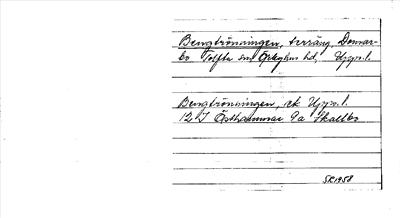 Bengtrönningen, terräng, Dannar-
bo Tolfta sn Örbyhus hd, Upps. l.
Bengtrönningen, ek Upps. l.
12 I Östhammar 9a Skallbo
SK1958